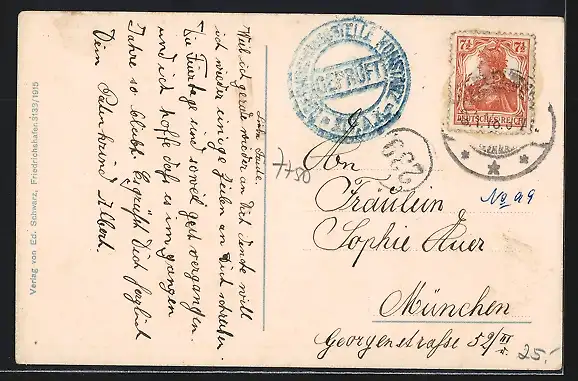 Verlag von Ed. Schwarz, Friedrichshafen 3139/1915
Liebe Tante.
Weil ich gerade wieder an dich denke will
ich wieder einige Zeilen an Dich schreiben.
Die Feiertage sind soweit gut vergangen.
und ich hoffe daß es im ganzen
Jahre so bleibt. Es grüßt Dich herzlich
Dein Patenkind Albert.
KONSTANZ
GEPRÜFT
7½ 7½
DEUTSCHES REICH
233
7750
An
Fräulein
Sophie Auer
No a 9
München
Georgenstraße 52/III
r.
25.-